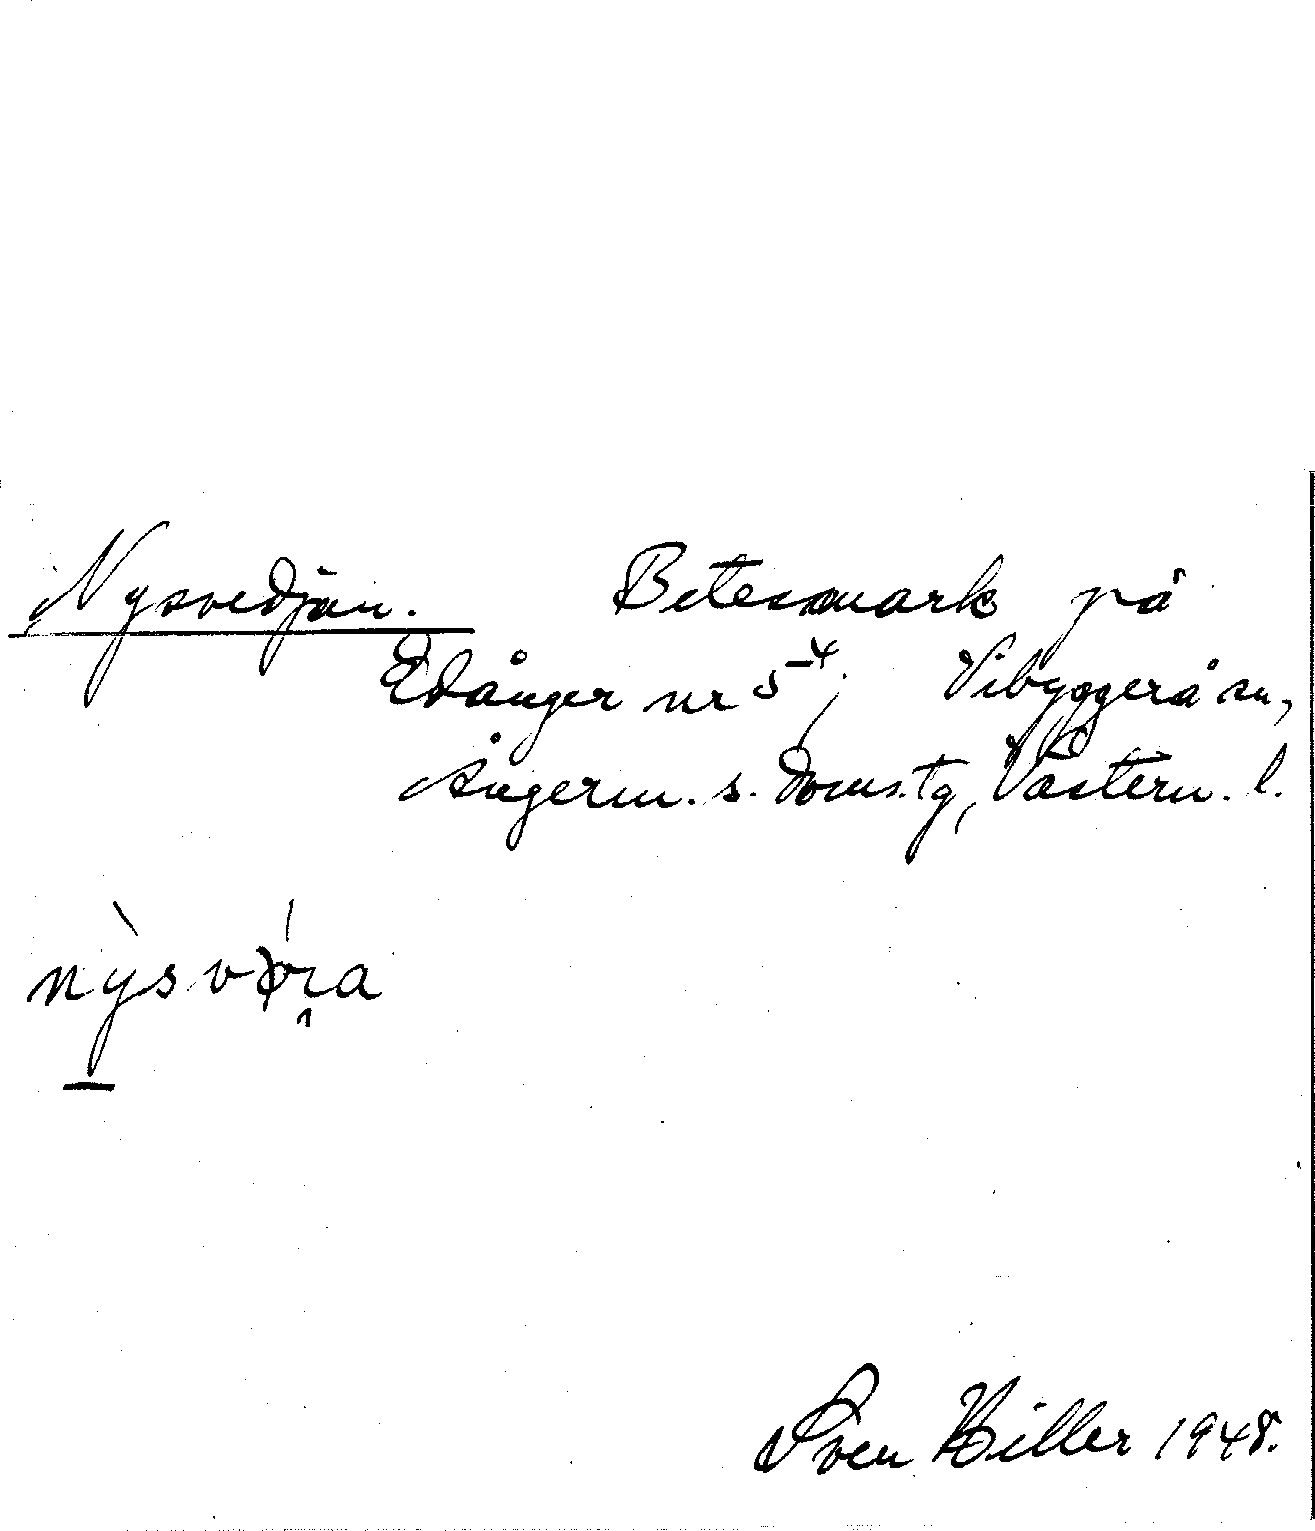 Nysvedjan. Betesmark på
Edånger nr 5⁴, Vibyggerå sn,
Ångerm. s. doms.tg, Västern. l.
Sven Hiller 1948.